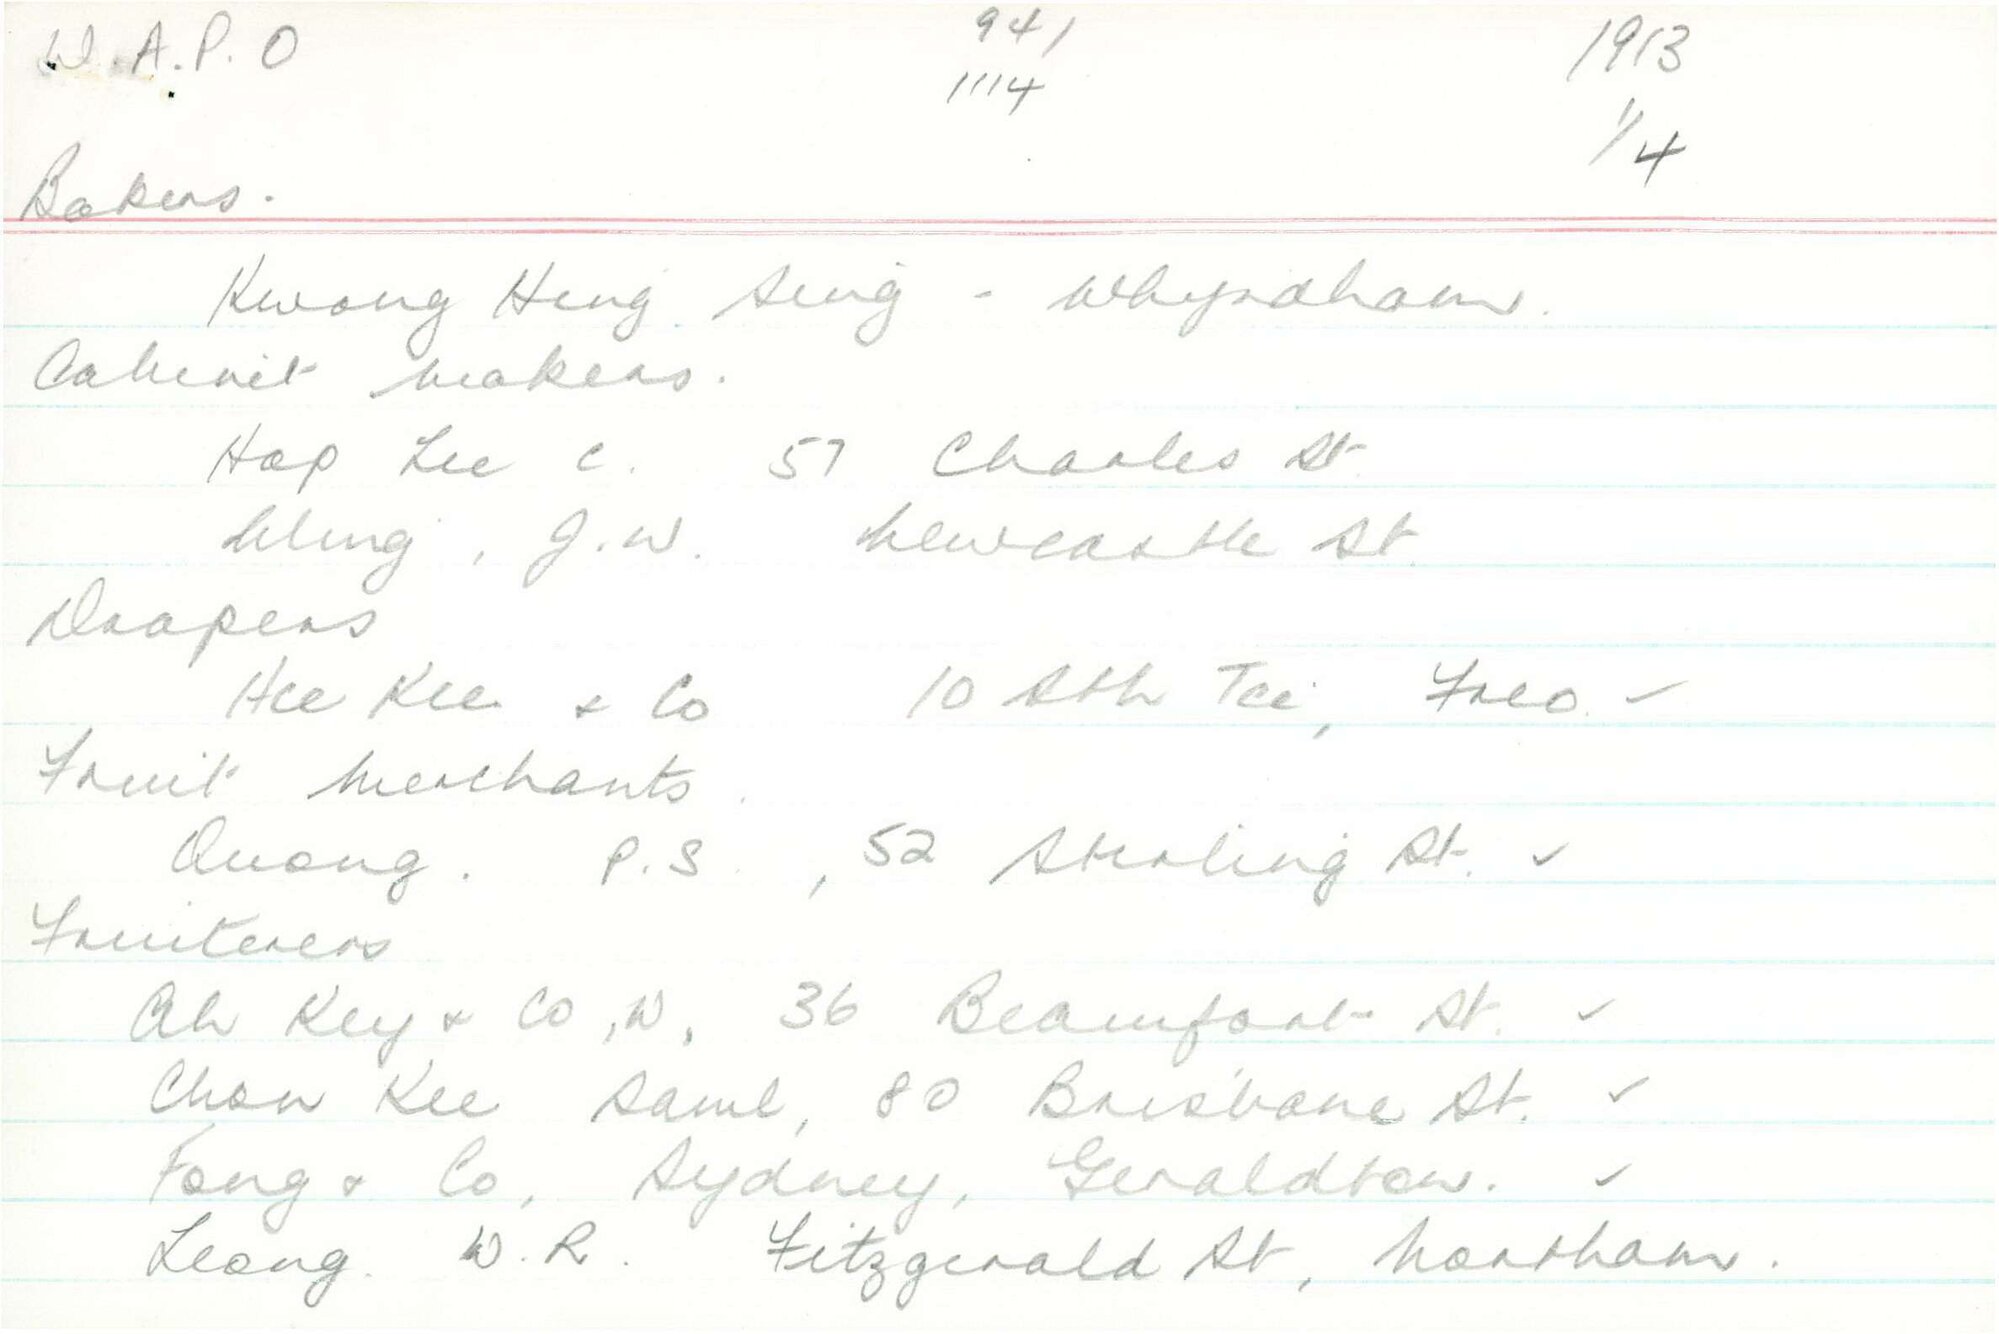 W.A.P.O 941 1913
1114 1/4
Bakers.
Kwong Hing Sing - Whyndham.
Cabinet makers.
Hop Lee C. 57 Charles St
Wing, J.W. Newcastle St
Drapers
Hee Kee & Co 10 Sth Tce, Freo. ✓
Fruit Merchants.
Quong. P.S., 52 Stirling St. ✓
Fruiterers
Ah Key & Co, W, 36 Beaufort St. ✓
Chow Kee Saml, 80 Brisbane St. ✓
Fong & Co, Sydney, Geraldton. ✓
Leong. W.R. Fitzgerald St, Northam.